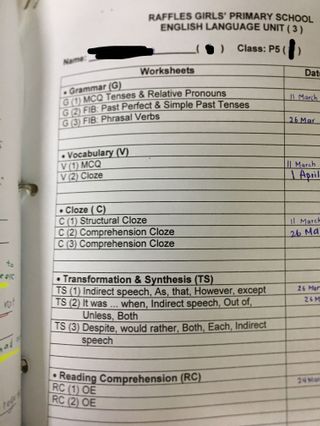 RAFFLES GIRLS' PRIMARY SCHOOL
ENGLISH LANGUAGE UNIT ( 3 )
Name: ( ) Class: P5 ( )
Worksheets Dat
• Grammar (G)
G (1) MCQ Tenses & Relative Pronouns 11 March
G (2) FIB: Past Perfect & Simple Past Tenses
G (3) FIB: Phrasal Verbs 26 Mar
• Vocabulary (V)
V (1) MCQ 11 March
V (2) Cloze 1 April
• Cloze ( C )
C (1) Structural Cloze 11 March
C (2) Comprehension Cloze 26 Ma
C (3) Comprehension Cloze
• Transformation & Synthesis (TS)
TS (1) Indirect speech, As, that, However, except 26 Mar
TS (2) It was ... when, Indirect speech, Out of, 26 M
Unless, Both
TS (3) Despite, would rather, Both, Each, Indirect
speech
• Reading Comprehension (RC)
RC (1) OE
RC (2) OE